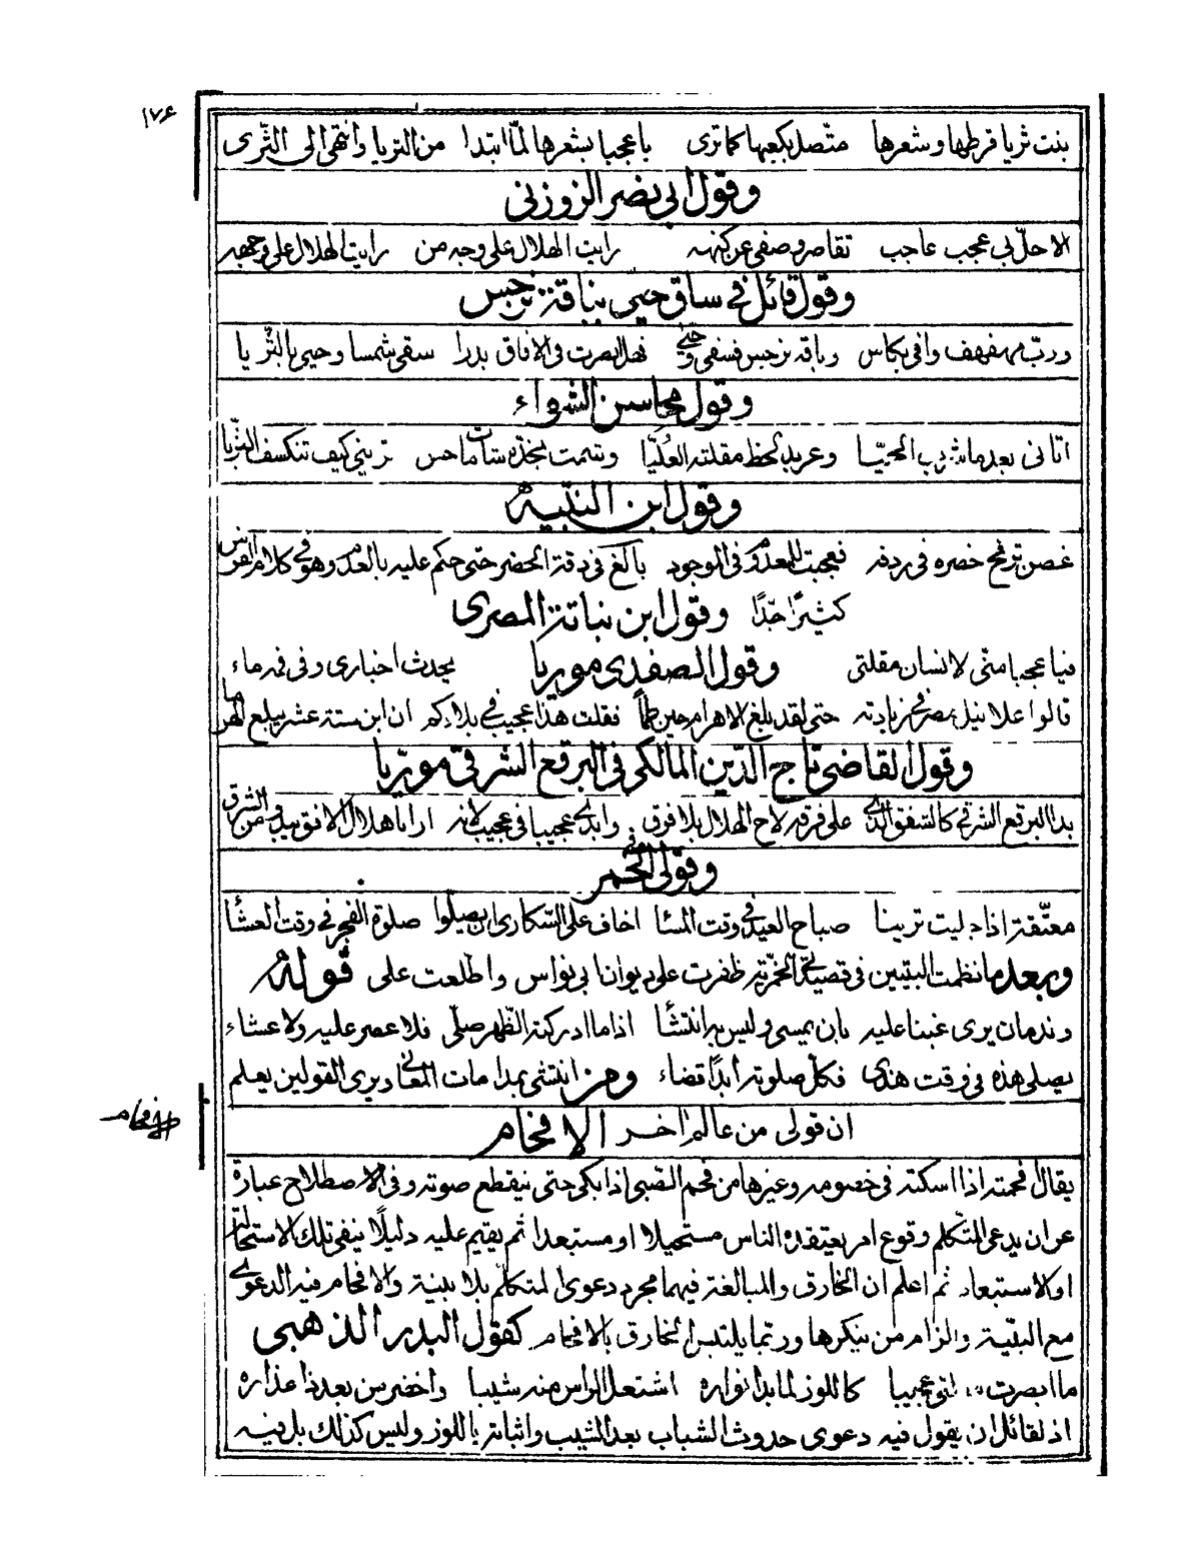 ١٧٤
بنت ثريا قرطها وشعرها متصل بكعبها كما ترى يا عجبا بشعرها لمّا ابتدا من الثريا وانتهى الى الثّرى
وقول ابى نصر الزوزنى
الا حلّ بى عجب عاجب تقاصر وصفى عن كنهه رايت الهلال على وجه من رايت الهلال على وجهه
وقول قائل فى ساق حيى بباقة نرجس
وربّ مهفهف وافى بكاس وباقة نرجس فسقى وحيّى فهل ابصرت فى الافاق بدرا سقى شمسا وحيى بالثّريا
وقول محاسن الشواء
اتانى بعدما شرب الحميّا وعربد لحظ مقلته وشمت بخدّه شامات حس ترينى كيف تنكسف الثّريا
وقول ابن النبيه
غصن ترنح خصره فى ردفه فعجبت للمعدوم فى الموجود بالغ فى دقة الخضر حتى حكم عليه بالعدم وهو فى كلام الفرس
كثيرًا جّدًا وقول ابن نباتة المصرى
فيا عجبا منّى لانسان مقلتى يحدث اخبارى وفى فمه ماء وقول الصفدى موريا
قالوا علا نيل مصر فى زيادته حتى لقد بلغ الاهرام حين طما فقلت هذا عجيب فى بلادكم ان ابن ستة عشر يبلع الهرما
وقول القاضى تاج الدّين المالكى فى البرقع الشرقى موريّا
بدا البرقع الشرقى كالشفق الذى على فرقه لاح الهلال بلا فرق وابدى عجيبا فى عجيب لانه ارانا هلال الافق يبدو من الشرق
وقولى فى الخمر
معتّقة اذا جليت ترينا صباح العيد فى وقت المسا اخاف على السّكارى ان يصلوا صلوة الفجر فى وقت العشا
وبعد ما نظمت البيتين فى قصيدتى الخمرية ظفرت على ديوان ابى نواس واطلعت على قوله
وندمان يرى غبنا عليه بان يمسى وليس به انتشا اذا ما ادركته الظّهر صلّى فلا عصر عليه ولا عشاء
يصلى هذه فى وقت هذى فكل صلوته ابدًا قضاء ومن انتشى بمدامات المعانى ويرى القولين يعلم
ان قولى من عالم اخر الافحام
الافحام
يقال فحمته اذا اسكته فى خصومه وغيرها من فحم الصّبى اذا بكى حتى ينقطع صوته وفى الاصطلاح عبارة
عن ان يدعى المتكلم وقوع امر يعتقده الناس مستحيلا او مستبعدا ثم يقيم عليه دليلًا ينفى تلك الاستحالة
او الاستبعاد ثم اعلم ان الخارق والمبالغة فيهما مجرد دعوى المتكلم بلا بينة والافحام فيه الدعوى
مع البيّنة والزام من ينكرها وربّما يلتبس الخارق بالافحام كقول البدر الذهبى
ما ابصرت عجيبا كاللوز لما بدا نواره اشتعل الراس منه شيبا واخضر من بعد ذا عذاره
اذ لقائل ان يقول فيه دعوى حدوث الشباب بعد الشيب واثباته باللوز وليس كذلك بل فيه